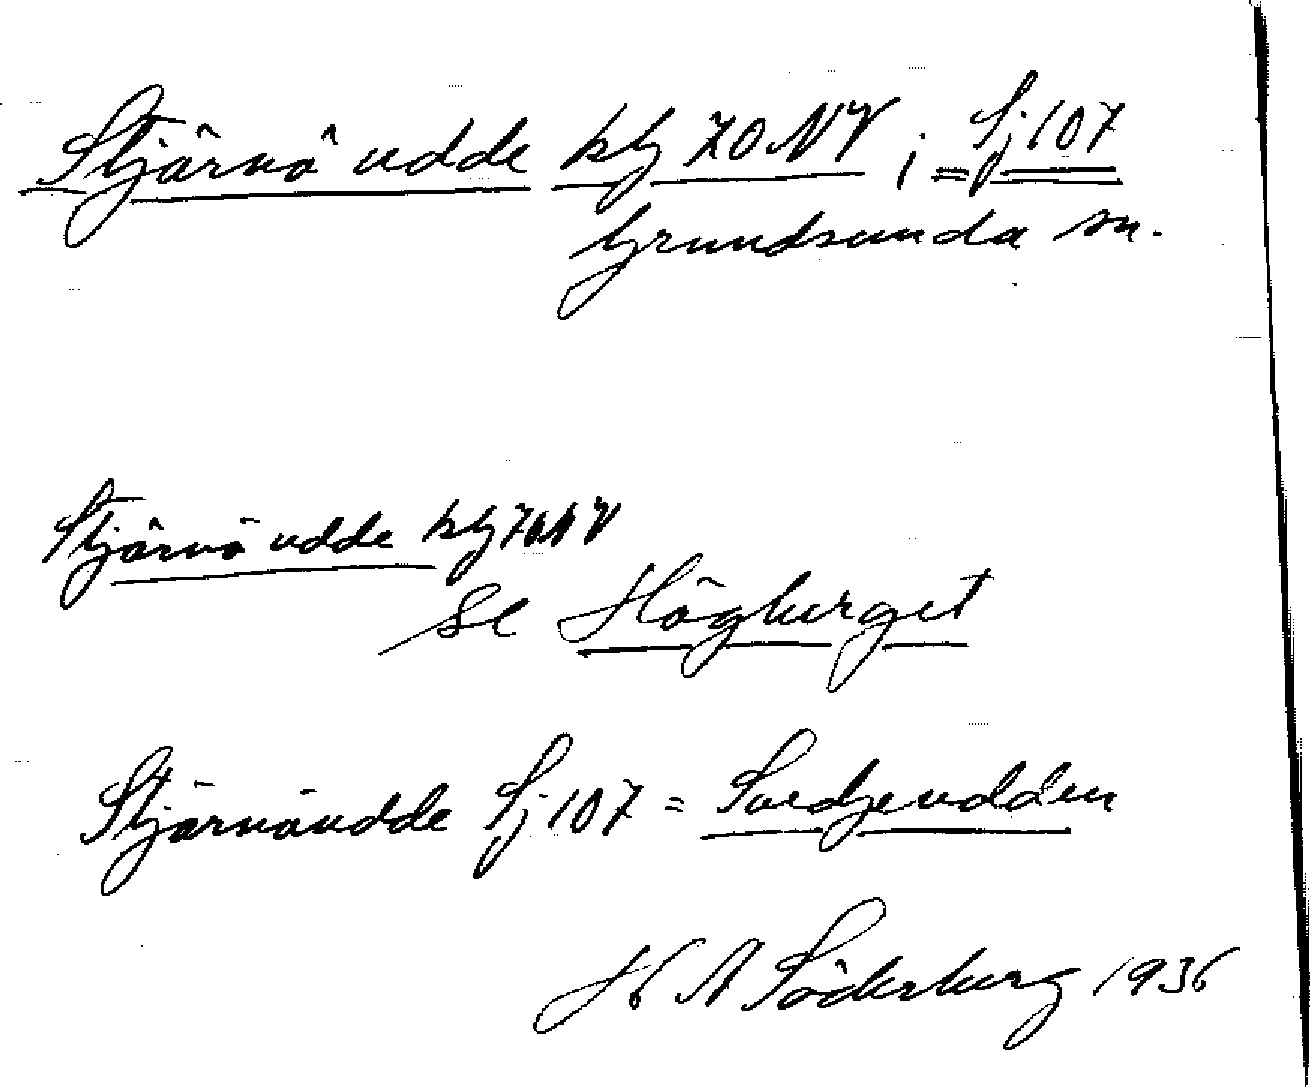 Stjärnö udde blz 70 NV ; = Sj 107
Grundsunda sn.
Stjärnö udde blz 70 NV
se Högberget
Stjärnöudde Sj 107 =
H A Söderberg 1936